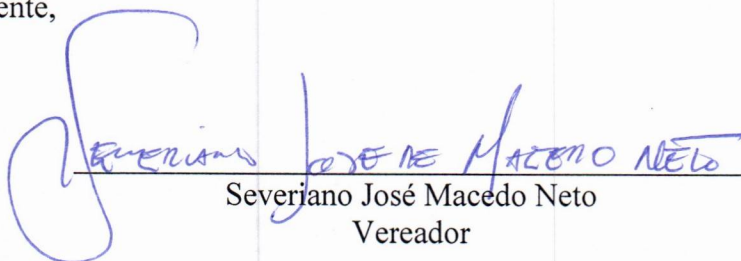 ente,
Severiano José de Macedo Neto
Severiano José Macedo Neto
Vereador